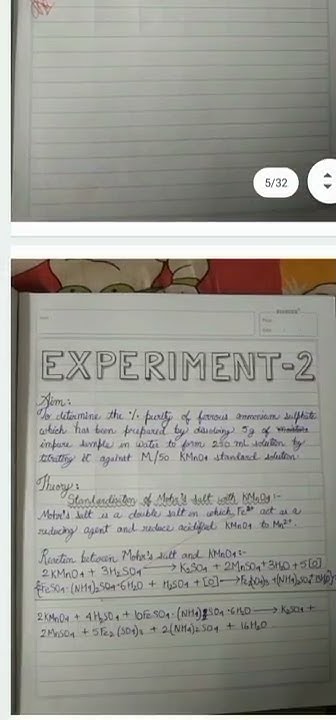 5/32
EXPERIMENT-2
Aim:
To determine the % purity of ferrous ammonium sulphate
which has been prepared by dissolving 5g of
impure sample in water to form 250 ml solution by
titrating it against M/50 KMnO4 standard solution.
Theory:
Standardisation of Mohr's salt with KMnO4:-
Mohr's salt is a double salt in which Fe2+ act as a
reducing agent and reduce acidified KMnO4 to Mn2+.
Reaction between Mohr's salt and KMnO4:-
2KMnO4 + 3H2SO4 → K2SO4 + 2MnSO4 + 3H2O + 5[O]
[FeSO4·(NH4)2SO4·6H2O + H2SO4 + [O] →
2KMnO4 + 4H2SO4 + 10FeSO4·(NH4)2SO4·6H2O → K2SO4 +
2MnSO4 + 5Fe2(SO4)3 + 2(NH4)2SO4 + 16H2O